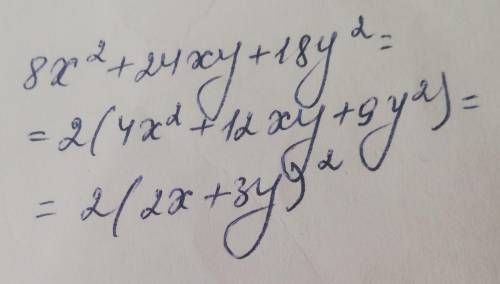 8x² + 24xy + 18y² =
= 2(4x² + 12xy + 9y²) =
= 2(2x + 3y)²